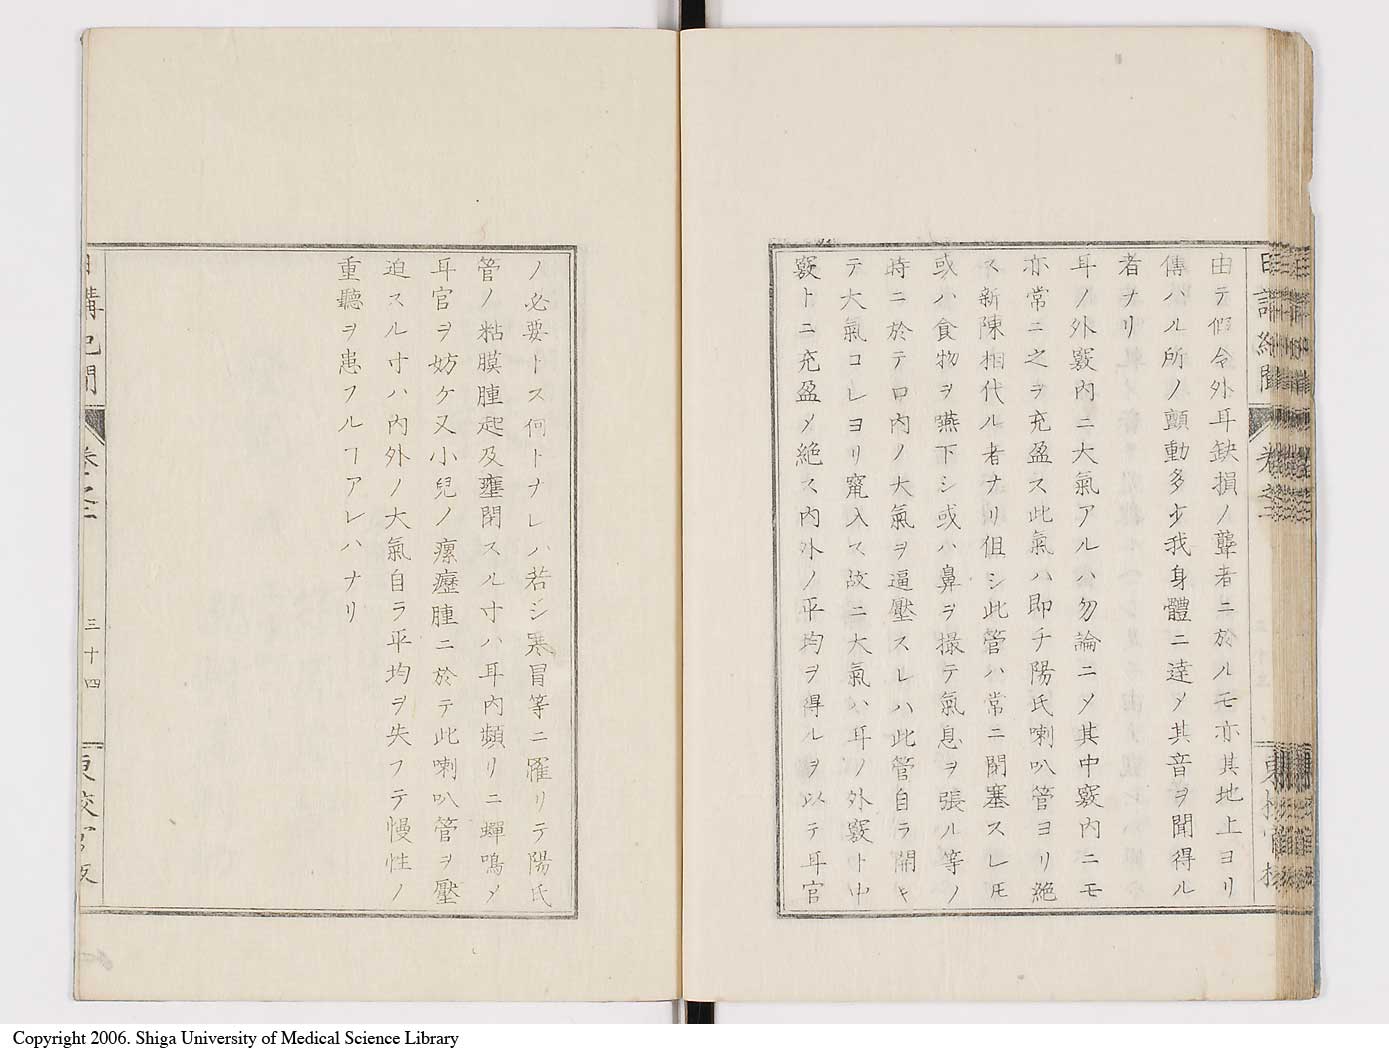 由テ假令外耳缺損ノ聾者ニ於ルモ亦其地上ヨリ
傳ハル所ノ顫動多少我身體ニ達〆其音ヲ聞得ル
者ナリ
耳ノ外竅内ニ大氣アルハ勿論ニ〆其中竅内ニモ
亦常ニ之ヲ充盈ス此氣ハ即チ陽氏喇叭管ヨリ絶
ス新陳相代ル者ナリ但シ此管ハ常ニ閉塞スレ𪜈
或ハ食物ヲ嚥下シ或ハ鼻ヲ撮テ氣息ヲ張ル等ノ
時ニ於テ口内ノ大氣ヲ逼壓スレハ此管自ラ開キ
テ大氣コレヨリ竄入ス故ニ大氣ハ耳ノ外竅ト中
竅トニ充盈〆絶ス内外ノ平均ヲ得ルヲ以テ耳官
ノ必要トス何トナレハ若シ寒冒等ニ罹リテ陽氏
管ノ粘膜腫起及壅閉スル寸ハ耳内頻リニ蟬鳴〆
耳官ヲ妨ケ又小兒ノ瘰癧腫ニ於テ此喇叭管ヲ壓
迫スル寸ハ内外ノ大氣自ラ平均ヲ失フテ慢性ノ
重聽ヲ患フルヿアレハナリ
日講記聞
卷之二
三十四
東校官版
Copyright 2006. Shiga University of Medical Science Library